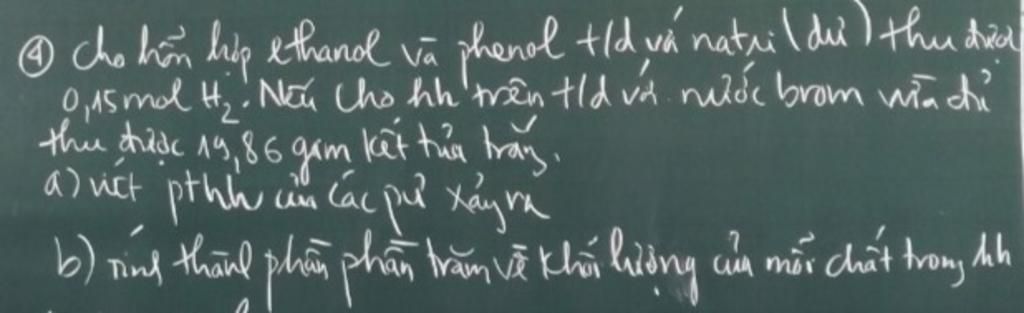 ④ Cho hỗn hợp ethanol và phenol t/d vá natri (dư) thu được
0,15 mol H₂. Nếu cho hh trên t/d vá nước brom vừa đủ
thu được 19,86 gam kết tủa trắng.
a) viết pthh của các pứ xảy ra
b) Tính thành phần phần trăm về khối lượng của mỗi chất trong hh